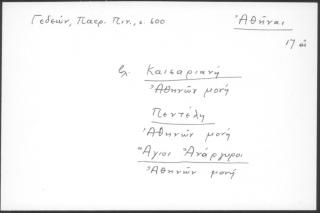 Γεδεών, Πατρ. Πιν., σ. 600
Ἀθῆναι
17 αἰ
βλ. Καισαριανή
Ἀθηνῶν μονή
Πεντέλη
Ἀθηνῶν μονή
Ἅγιοι Ἀνάργυροι
Ἀθηνῶν μονή